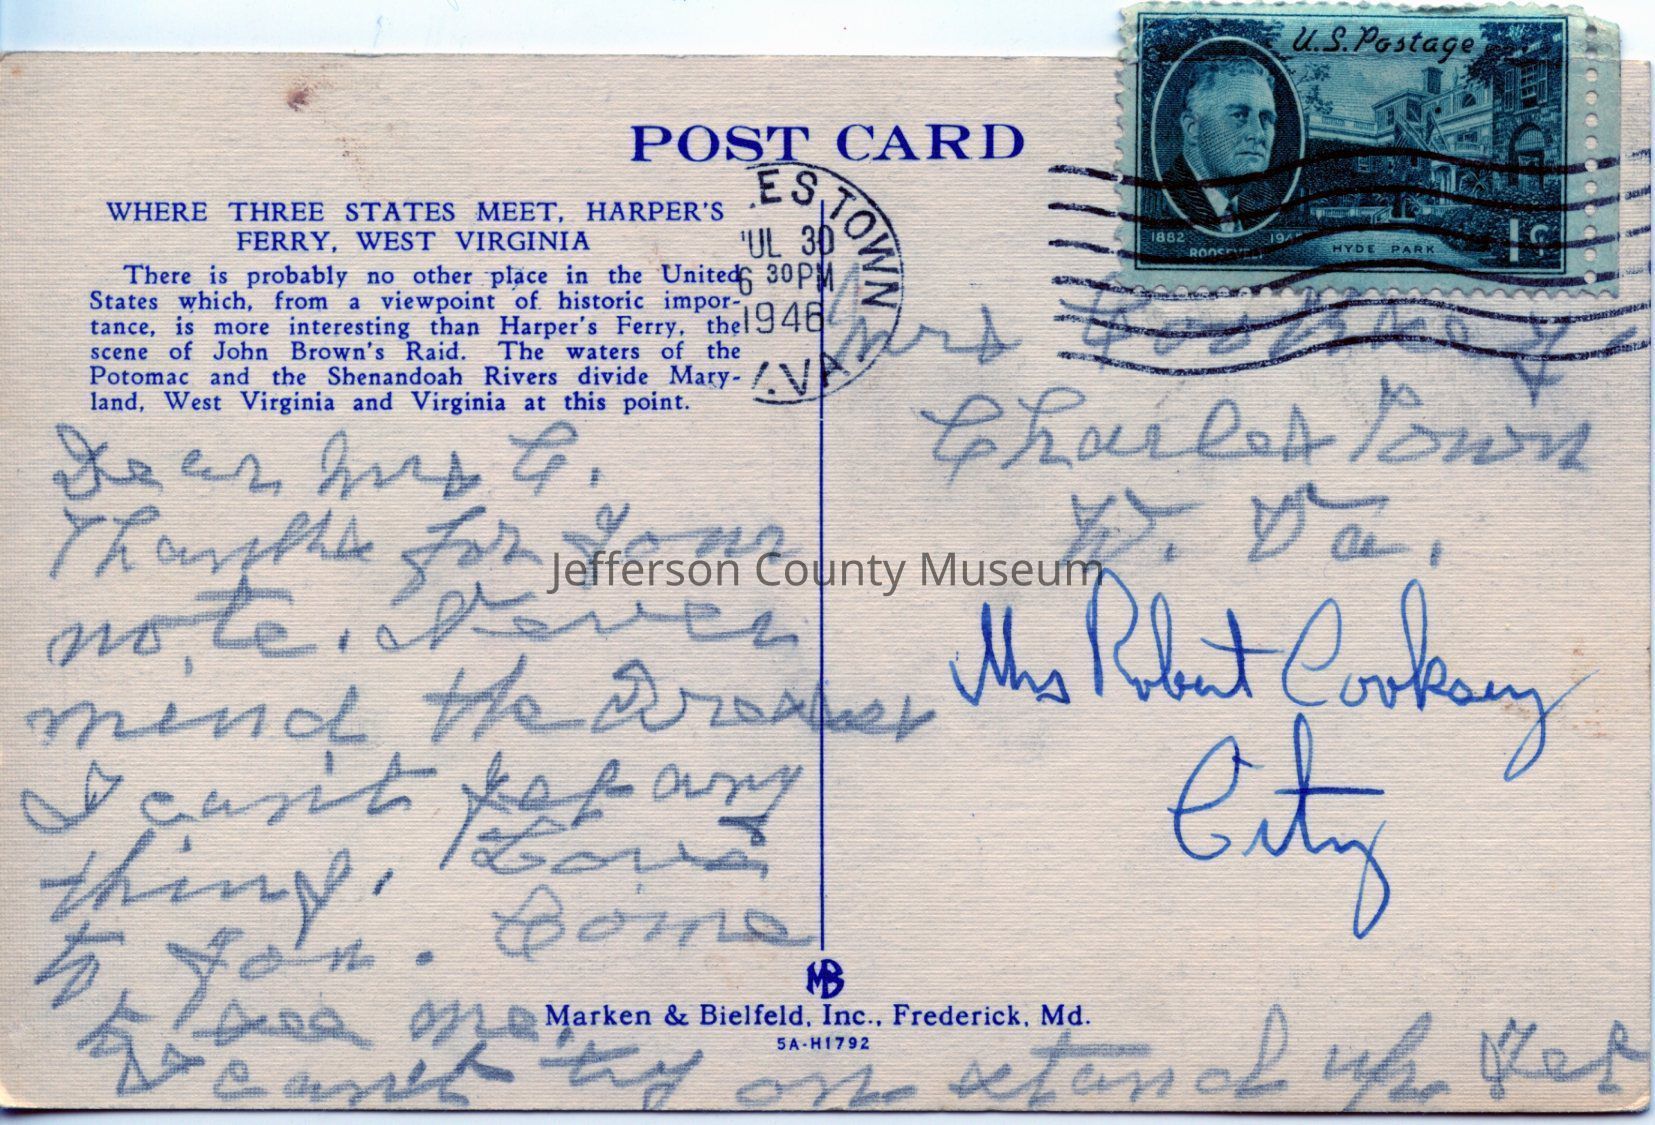 U.S. Postage
1882 1945
ROOSEVELT HYDE PARK 1¢
POST CARD
ES TOWN
JUL 30
6 30 PM
1946
.VA.
WHERE THREE STATES MEET, HARPER'S
FERRY, WEST VIRGINIA
There is probably no other place in the United
States which, from a viewpoint of historic impor-
tance, is more interesting than Harper's Ferry, the
scene of John Brown's Raid. The waters of the
Potomac and the Shenandoah Rivers divide Mary-
land, West Virginia and Virginia at this point.
Dear Mrs C.
Thanks for Your
note. Never
mind the Dresses
I cant
any
thing. Love
to You. Come
to see me.
I cant try on stand up Yet
Mrs
Charles Town
W. Va.
Mrs Robert Cooksey
City
Jefferson County Museum
MB
Marken & Bielfeld, Inc., Frederick, Md.
5A-H1792